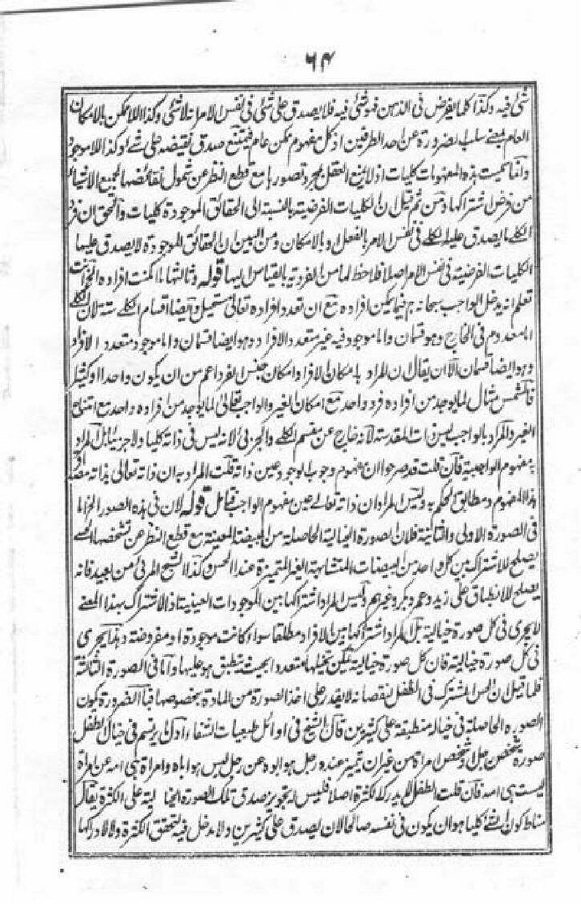 ٦٤
شئ فيه وكذا كلما يفرض فى الذهن فهو شئ فيه فلا يصدق على شئ فى نفس الامر انه لا شئ وكذا اللاممكن بالامكان
العام بمعنى سلب الضرورة عن احد الطرفين اذ كل مفهوم ممكن عام فيمتنع صدق نقيضه على شئ وكذا اللاموجود
وانما سميت هذه المفهومات كليات اذ لا يمنع العقل بمجرد تصورها مع قطع النظر عن شمول نقائضها لجميع الاشياء
من فرض اشتراكها ومن ثم قيل ان الكليات الفرضية بالنسبة الى الحقائق الموجودة كليات والتحقيق ان فرد
الكلى ما يصدق عليه الكلى فى نفس الامر بالفعل او بالامكان ومن البين ان الحقائق الموجودة لا يصدق عليها
الكليات الفرضية فى نفس الامر اصلا فلاحظ لها من الفردية بالقياس اليها قوله
تعلم انه يدخل الواجب سبحانه فيما يمكن افراده مع ان تعدد افراده تعالى مستحيل وايضا اقسام الكلى ستة لان الكلى
اما معدوم فى الخارج وهو قسمان واما موجود فيه غير متعدد الافراد وهو ايضا قسمان واما موجود متعدد الافراد
وهو ايضا قسمان الا ان يقال ان المراد بامكان الافراد امكان جنس الفرد اعم من ان يكون واحدا او كثيرا
فالشمس مثال لما يوجد من افراده فرد واحد مع امكان الغير والواجب تعالى لما يوجد من افراده واحد مع امتناع
الغير والمراد بالواجب ليس ذات المقدسة لانه خارج عن مقسم الكلى والجزئى لانه ليس فى ذاته كليا ولا جزئيا بل المراد
به مفهوم الواجبية فان قلت قد صرحوا ان مفهوم وجوب الوجود عين ذاته قلت المراد به ان ذاته تعالى بذاته مصداق
هذا المفهوم ومطابق الحكم به وليس المراد ان ذاته تعالى عين مفهوم الواجب قوله لان فى هذه الصور الخ اما
فى الصورة الاولى والثانية فلان الصورة الخيالية الحاصلة من البيضة المعينة مع قطع النظر عن تشخصها
يصلح للاشتراك بين كل واحد من البيضات المتشابهة الغير المتميزة عند الحس وكذا الشبح المرئى من بعيد فانه
يصلح للانطباق على زيد وعمرو وبكر وغيرهم وليس المراد اشتراكها بين الموجودات العينية اذ الاشتراك بهذا المعنى
لا يجرى فى كل صورة خيالية بل المراد اشتراكها بين الافراد مطلقا سواء كانت موجودة او مفروضة وهذا يجرى
فى كل صورة خيالية فان كل صورة خيالية يمكن تخيلها متعددا بحيث ينطبق هو عليها واما فى الصورة الثالثة
فلما قيل ان الحس المشترك فى الطفل لنقصانه لا يقدر على اخذ الصورة من المادة بخصوصها فبالضرورة يكون
الصورة الحاصلة فى خياله منطبقة على كثيرين قال الشيخ فى اوائل طبعيات الشفاء اول ما يرتسم فى خيال الطفل
صورة شخص رجل او شخص امرأة من غير ان يتميز عنده رجل هو ابوه عن رجل ليس هو اباه وامرأة هى امه عن امرأة
ليست هى امه فان قلت الطفل لا يدرك الكثرة اصلا فليس له تجويز صدق تلك الصورة الخيالية على الكثرة يقال
مناط كون الشئ كليا هو ان يكون فى نفسه صالحا لان يصدق على كثيرين ولا مدخل فيه لتحقق الكثرة ولا لادراكها